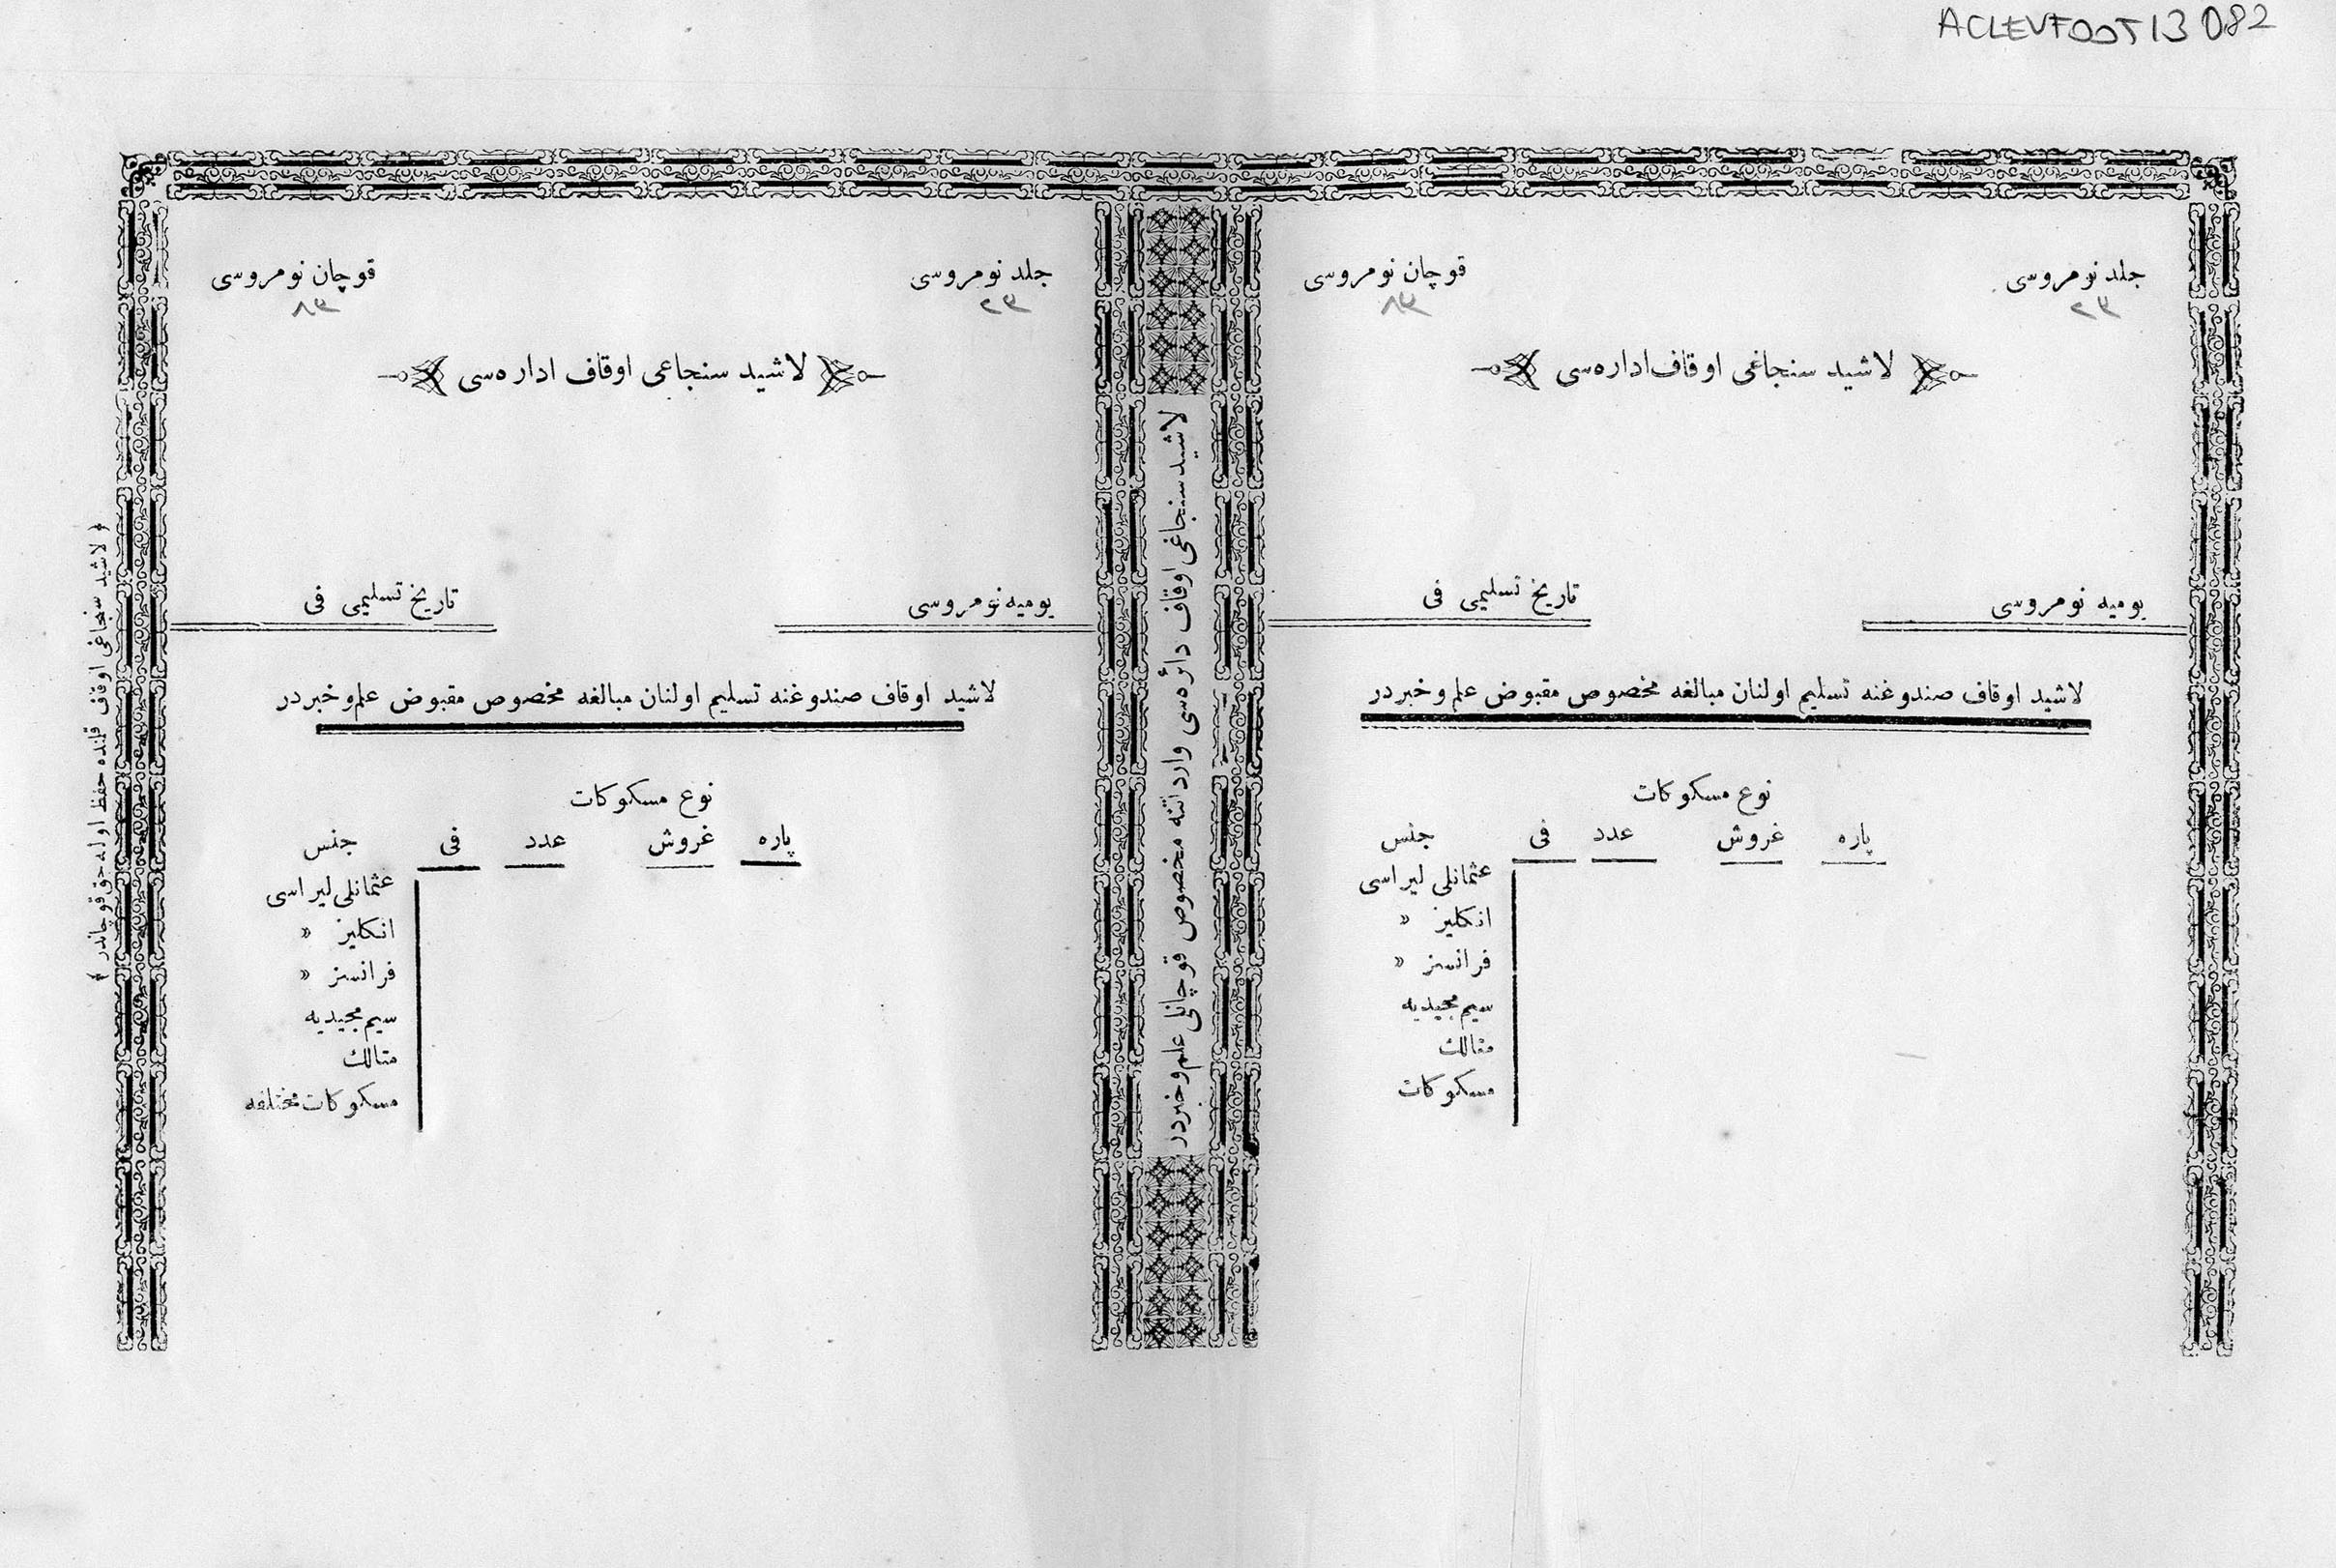 ACLEVF00T13 082
جلد نومروسی
٢٣
قوچان نومروسی
٨٣
لاشید سنجاغی اوقاف اداره‌سی
یومیه نومروسی
تاریخ تسلیمی فی
لاشید اوقاف صندوغنه تسلیم اولنان مبالغه مخصوص مقبوض علم و خبردر
نوع مسکوکات
پاره غروش عدد فی جنس
عثمانلی لیراسی
انکلیز »
فرانسز »
سیم مجیدیه
متالك
مسکوکات
لاشید سنجاغی اوقاف دائره‌سی وارداتنه مخصوص قوچانلی علم و خبردر
جلد نومروسی
٢٣
قوچان نومروسی
٨٣
لاشید سنجاغی اوقاف اداره‌سی
یومیه نومروسی
تاریخ تسلیمی فی
لاشید اوقاف صندوغنه تسلیم اولنان مبالغه مخصوص مقبوض علم و خبردر
نوع مسکوکات
پاره غروش عدد فی جنس
عثمانلی لیراسی
انکلیز »
فرانسز »
سیم مجیدیه
متالك
مسکوکات مختلفه
﴿ لاشید سنجاغی اوقاف قلمنده حفظ اوله‌جق قوچاندر ﴾